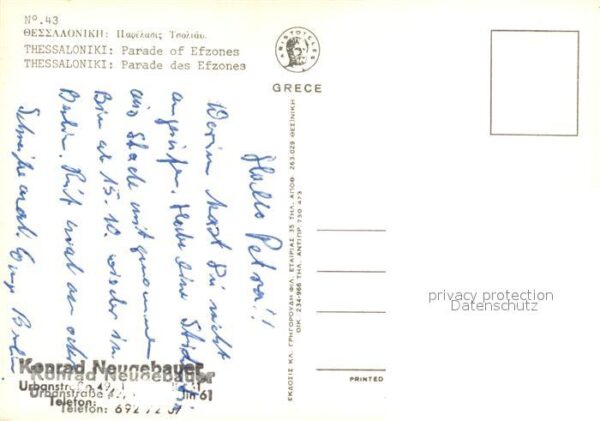 N°. 43
ΘΕΣΣΑΛΟΝΙΚΗ: Παρέλασις Τσολιάδων.
THESSALONIKI: Parade of Efzones
THESSALONIKI: Parade des Efzones
ARISTOTELES
GRECE
Hallo Petra!!
Warum hast Du nicht
angerufen. Habe eine
aus Stade mit genommen
Bin ab 15.10. wieder in
Berlin. Ruf mal an oder
Schreibe mal. Berlin
ΕΚΔΟΣΙΣ ΚΛ. ΓΡΗΓΟΡΟΥΔΗ ΦΙΛ. ΕΤΑΙΡΙΑΣ 35 ΤΗΛ. ΑΠΟΘ. 263.029 ΘΕΣ/ΝΙΚΗ
ΟΙΚ. 234-966 ΤΗΛ. ΑΝΤΙΠΡ. 730-473
privacy protection
Datenschutz
PRINTED
Konrad Neugebauer
Konrad Neugebauer
Urbanstraße 49, lin 61
Urbanstraße
Telefon:
Telefon: 692